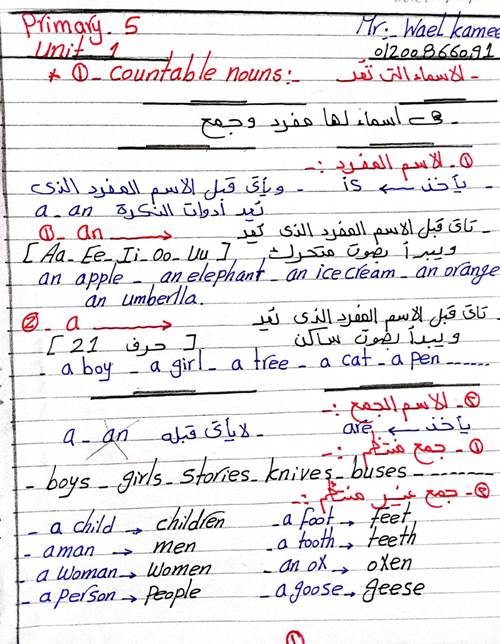 Primary. 5 Mr:- Wael kamee
Unit 1 01200866091
* ①- countable nouns:- الاسماء التى تُعد -
هى اسماء لها مفرد وجمع
①- الاسم المفرد :-
- يأخذ ← is - ويأتى قبل الاسم المفرد الذى
يُعد أدوات النكرة a - an
①- an → - تأتى قبل الاسم المفرد الذى يُعد
[ Aa - Ee - Ii - Oo - Uu ] ويبدأ بصوت متحرك
an apple - an elephant - an ice cream - an orange
an umberlla.
②- a → - تأتى قبل الاسم المفرد الذى يُعد
[ 21 حرف ] ويبدأ بصوت ساكن
- a boy - a girl - a tree - a cat - a pen ------
②- الاسم الجمع :-
يأخذ ← are - لا يأتى قبله a - an
①- جمع منتظم :-
- boys - girls - stories - knives - buses --------
②- جمع غير منتظم :-
- a child → children - a foot → feet
- a man → men - a tooth → teeth
- a woman → women - an ox → oxen
- a person → people - a goose → geese
①